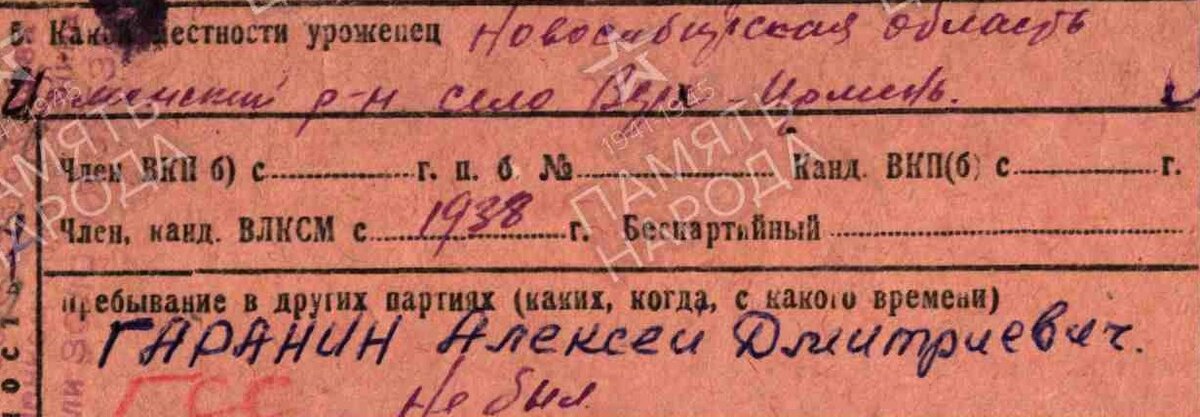 5. Какой местности уроженец Новосибирская область
Ирменский р-н село Верх-Ирмень.
Член ВКП б) с г. п. б. № Канд. ВКП(б) с г.
Член, канд. ВЛКСМ с 1938 г. Беспартийный
Пребывание в других партиях (каких, когда, с какого времени)
ГАРАНИН Алексей Дмитриевич.
ГСС Не был
ПАМЯТЬ НАРОДА
1941 1945
ПАМЯТЬ НАРОДА